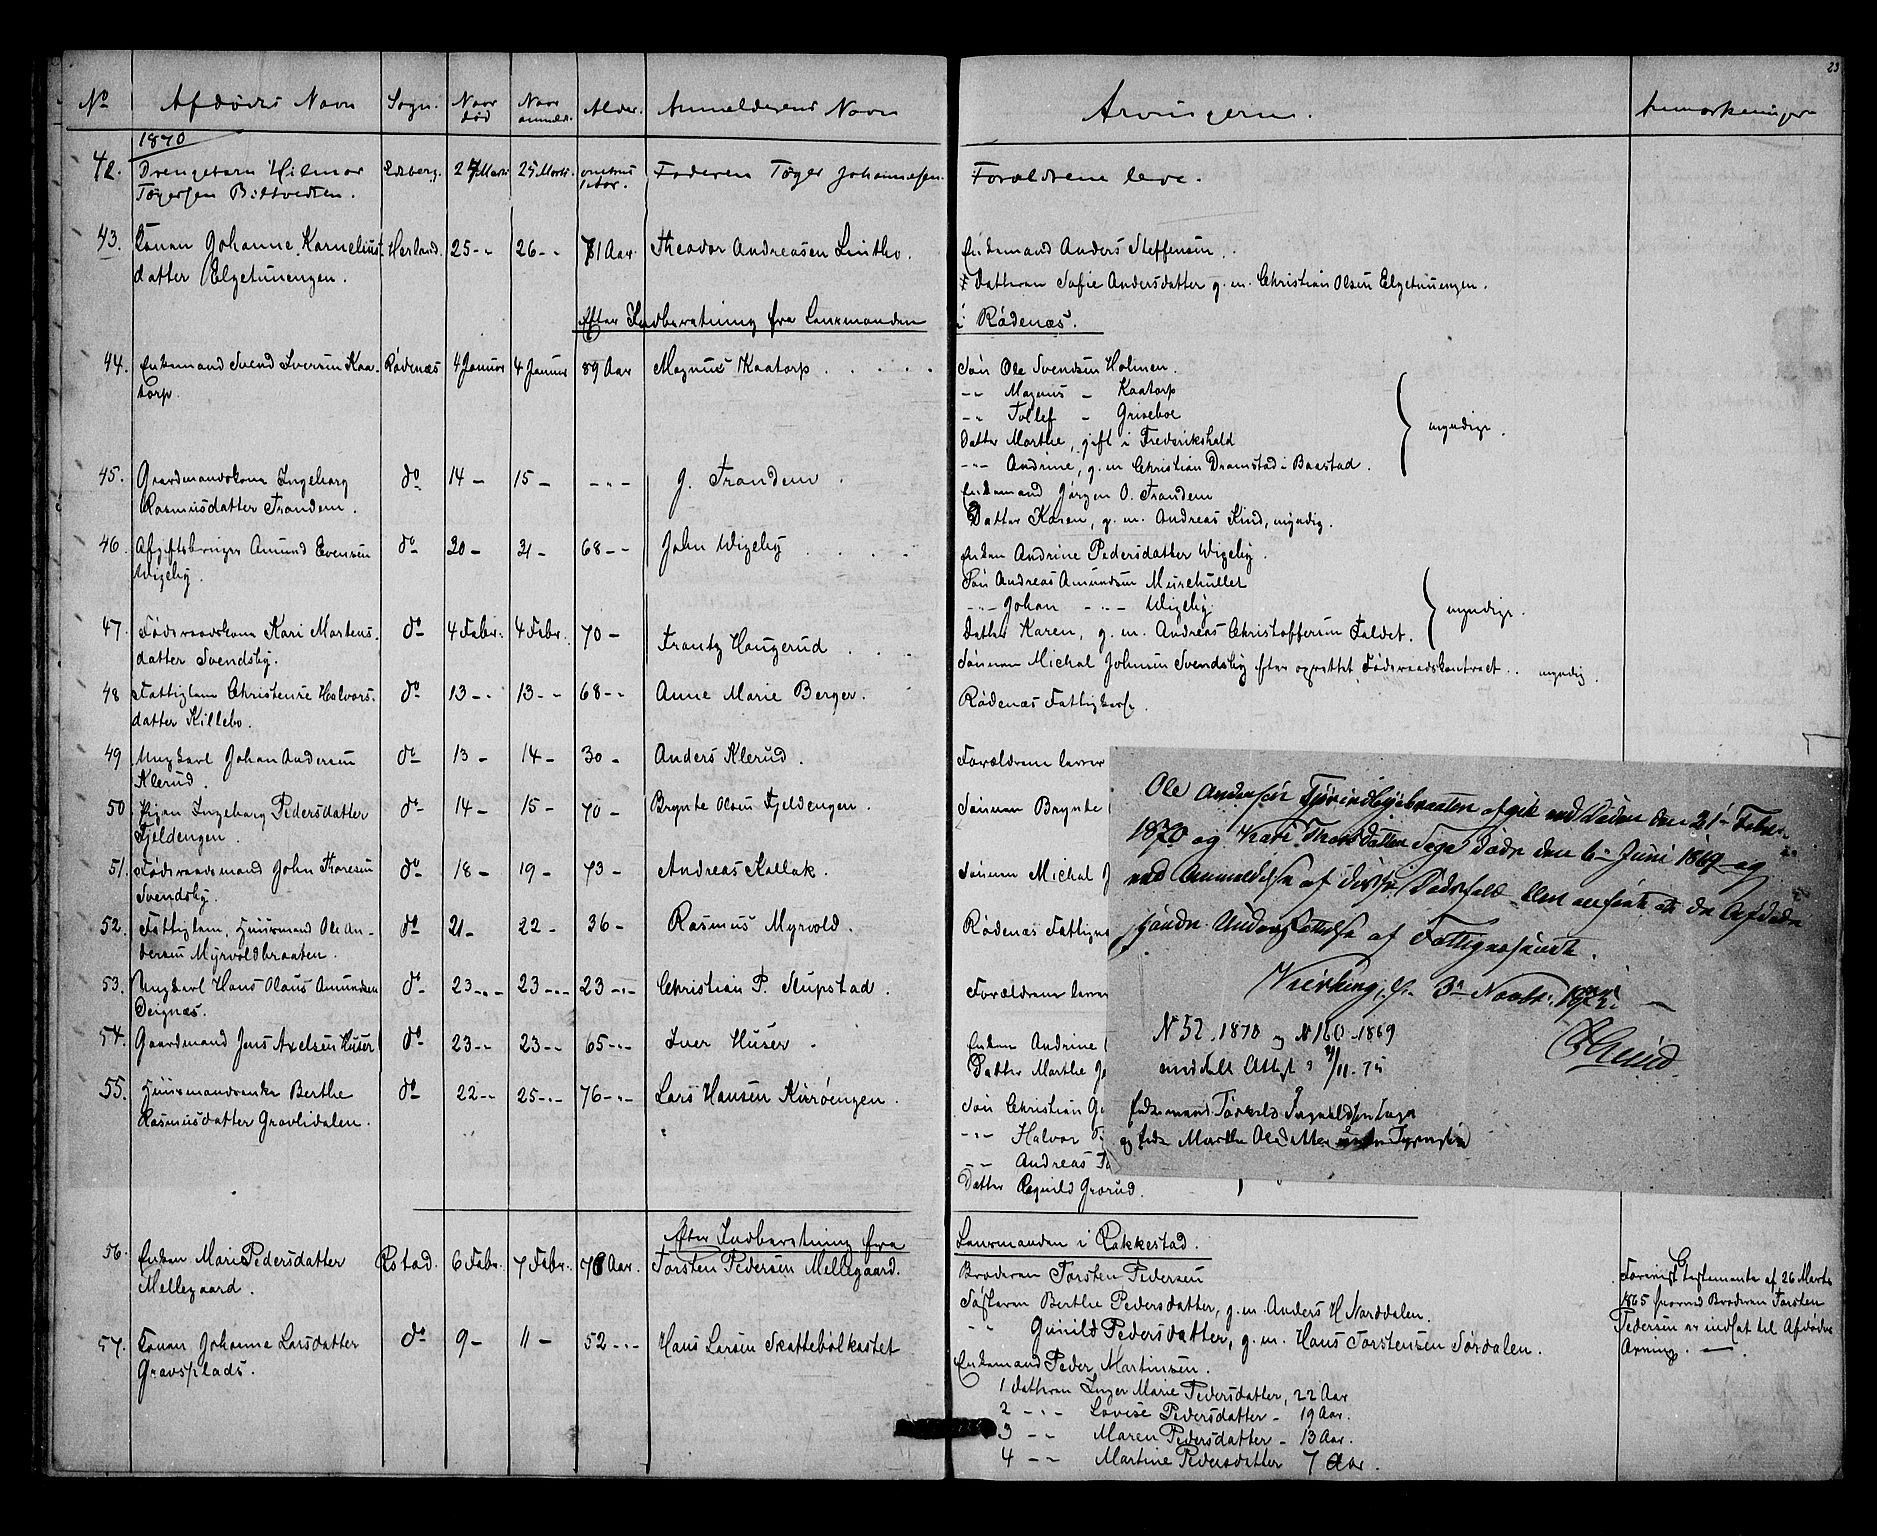 23
No Afdødes Navn Sogn. Naar død Naar anmeldt. Alder. Anmelderens Navn Arvingerne. Anmærkninger
1870
42. Drengebarn Hilmar Edsberg. 24 Marts 25 Marts Faderen Tøger Johannesen. Forældrene leve.
Tøgersen Biltvedten.
43. Konen Johanne Kornelius- Herland. 25 - „ 26 - „ 71 Aar Theodor Andreasen Lintho. Enkemand Anders Steffensen.
datter Elgetunengen. Datteren Sofie Andersdatter g. m. Christian Olsen Elgetunengen.
Efter Indberetning fra Lensmanden i Rødenæs.
44. Enkemand Svend Iversen Kaa- Rødenæs 4 Januar 4 Januar 89 Aar Magnus Kaatorp Søn Ole Svendsen Holmen.
torp. -„- Magnus - Kaatorp
-„- Tollef - Griseboe
Datter Marthe, gift i Frederikshald
-„- Andrine, g. m. Christian Dramstad i Baastad. myndige.
45. Gaardmandskone Ingeborg do 14 - 15 - - „ - J. Trandem. Enkemand Jørgen O. Trandem
Rasmusdatter Trandem. Datter Karen, g. m. Andreas Kind, myndig.
46. Afgiftsbruger Amund Evensen do 20 - 21 - 68 - - John Wigeby Enken Andrine Pedersdatter Wigeby.
Wigeby. Søn Andreas Amundsen
-„- Johan -„- Wigeby. myndige.
Datter Karen, g. m. Andreas Christoffersen Faldet.
47. Føderaadskone Kari Mortens- do 4 Febr. 4 Febr. 70 - Frantz Haugerud
datter Svendsby. Sønnen Michal Johnsen Svendsby efter oprettet Føderaadskontract. myndig.
48 Fattiglem Christense Halvors- do 13 - „ 13 - „ 68 - „ Anne Marie Berger. Rødenæs Fattigkasse.
datter Killebo.
49 Ungkarl Johan Andersen do 13 - 14 - 30 - Anders Klerud. Forældrene lever
Klerud.
50 Pigen Ingeborg Pedersdatter do 14 - 15 - 70 - Brynte Olsen Fjeldengen. Sønnen Brynte
Fjeldengen.
51. Føderaadsmand John Thoresen do 18 - 19 - 73 - Andreas Kallak. Sønnen Michal
Svendsby.
52. Fattiglem, Huusmand Ole An- do 21 - 22 - 36 - Rasmus Myrvold. Rødenæs Fattig
dersen Myrvoldbraaten.
53. Ungkarl Hans Olaus Amundsen do 23 - „ - 23 - „ - 23 - „ - Christian P. Slupstad. Forældrene lever
54. Gaardmand Jens Axelsen Huser do 23 - „ 23 - „ 65 - „ - Iver Huser. Enken Andrine
Datter Marthe
55. Huusmandsenke Berthe do 22 - „ 25 - „ - 76 - „ - Lars Hansen Kurøengen. Søn Christian
Rasmusdatter Gravlidalen. -„- Halvor
-„- Andreas
Datter Regnild Grorud.
Ole Andersen afgik ved Døden den 21de Febr.
1870 og Kari døde den 6te Juni 1869 og
ved Anmeldelse af disse Dødsfald blev anført at de Afdøde
havde Understøttelse af Fattigvæsenet.
3die Novbr. 1875.
N 52. 1870 og N 160. 1869
Attest 3/11. 75
og Enke Marthe Olsdatter
Efter Indberetning fra Lensmanden i Rakkestad.
56. Enken Mari Pedersdatter Rstad. 6 Febr. 7 Febr. 78 Aar. Torsten Pedersen Mellegaard. Broderen Torsten Pedersen
Mellegaard. Søsteren Berthe Pedersdatter, g. m. Anders H Norddalen.
-„- Gunild Pedersdatter, g. m. Hans Torstensen Sørdalen.
Testamente af 26 Marts
1865 hvorved Broderen Torsten
Pedersen er indsat til Afdødes
Arving.
57. Konen Johanne Larsdatter do 9 - 11 - 52 - „ - Hans Larsen Skattebølkastet Enkemand Peder Martinsen.
Gravsplads. 1 Datteren Inger Marie Pedersdatter, 22 Aar
2 -„- Lovise Pedersdatter - 19 Aar.
3 -„- Maren Pedersdatter - 13 Aar.
4 -„- Martine Pedersdatter 7 Aar.